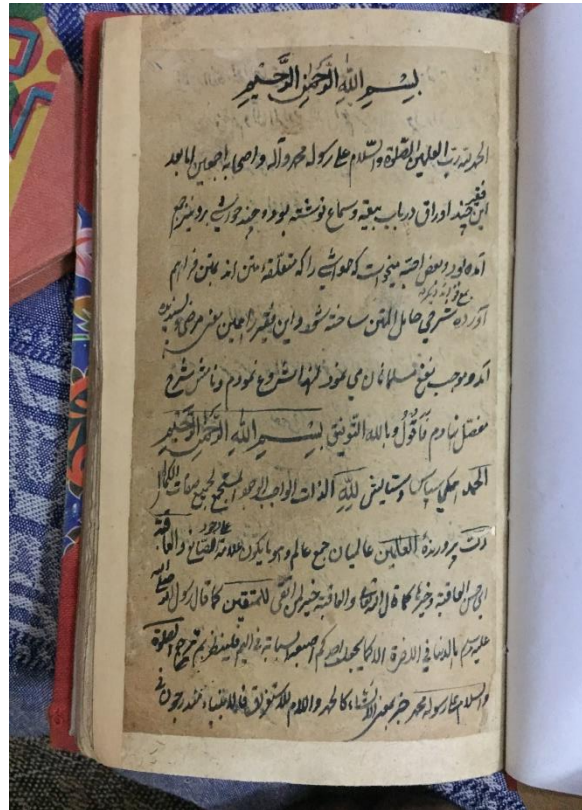 بسم الله الرحمن الرحيم
الحمد لله رب العلمين والصلوة والسلام على رسوله محمد وآله واصحابه اجمعين اما بعد
این فقیر چند اوراق در باب بیعة و سماع نوشته بوده چند حواشی برو نیز
آمده بود و بعض احبه میخواست که حواشی را که متعلقه متن اند بمتن فراهم
مع فوائد دیگر
آورده شرحی حامل المتن ساخته شود و این فقیر را همین معنی مرضی و پسندیده
آمد و موجب نفع مسلمانان می نمود لهذا شروع نمودم و نامش شرح
مفصل نهادم فاقول وبالله التوفيق بسم الله الرحمن الرحيم
الحمد سپاس وستایش لله الذات الواجب الوجود المستجمع لجميع صفات الكمال
رب پرورنده العلمين عالمیان جمع عالم وهو ما يكون علامة الصانع والعاقبة
ای حسن العاقبة وخيرها كما قال الله تعالى والعاقبة خير لمن اتقى للمتقين كما قال رسول الله صلى الله
عليه وسلم ما الدنيا في الاخرة الا كما يجعل احدكم اصبعه السبابة في اليم فلينظر بم يرجع والصلوة
والسلام على رسوله محمد خبر بمعنى الانشاء كالحمد واللام للاستغراق